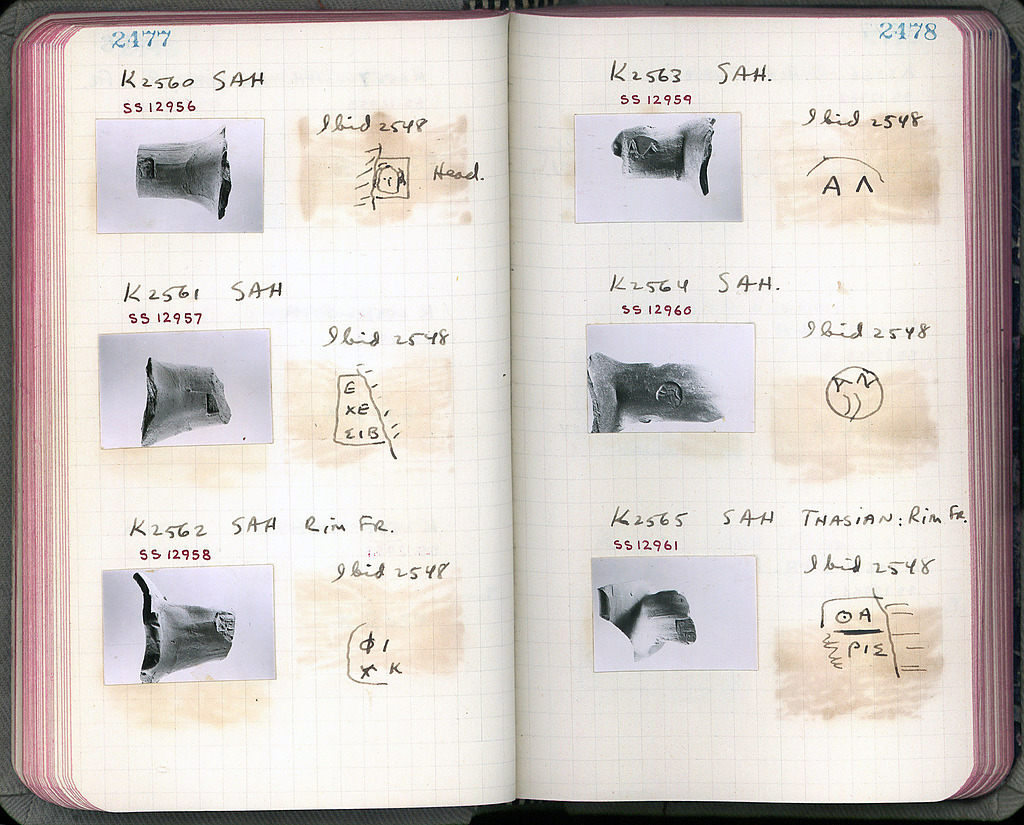 2477
K2560 SAH
SS 12956
Ibid 2548
Head.
K2561 SAH
SS 12957
Ibid 2548
E
XE
ΣIB
K2562 SAH Rim FR.
SS 12958
Ibid 2548
ϕ I
K
2478
K2563 SAH.
SS 12959
Ibid 2548
A Λ
K2564 SAH.
SS 12960
Ibid 2548
K2565 SAH THASIAN: Rim Fr.
SS 12961
Ibid 2548
ΘA
PIΣ